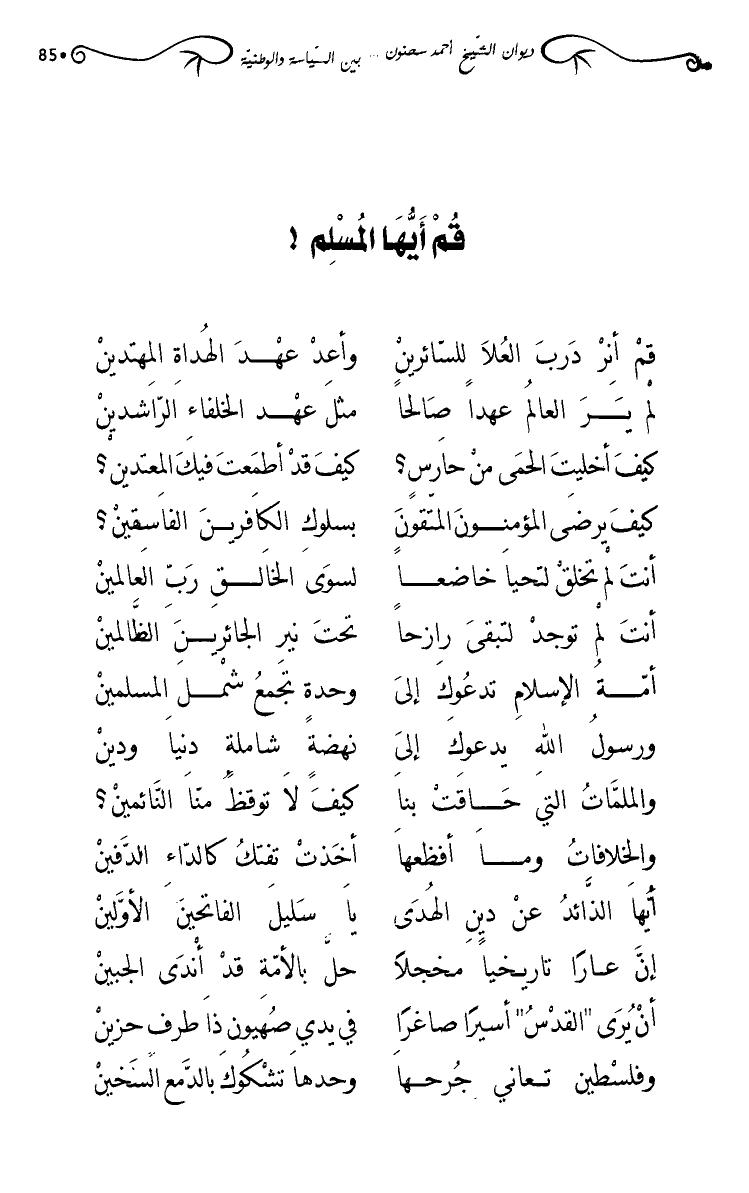 ديوان الشّيخ أحمد سحنون ... بين السّياسة والوطنيّة 85
قُمْ أَيُّهَا المُسْلِم !
قمْ أنِرْ دَربَ العُلاَ للسّائرينْ وأعدْ عهْدَ الهُداة المهتدينْ
لمْ يَرَ العالمُ عهداً صَالحاً مثل عهْد الخلفاء الرّاشدينْ
كيفَ أخليتَ الحمَى منْ حارسٍ؟ كيفَ قدْ أطمَعتَ فيكَ المعتدينْ؟
كيفَ يرضى المؤمنونَ المتّقونَ بسلوك الكافرينَ الفاسقينْ؟
أنتَ لمْ تخلقْ لتحيا خاضعاً لسوَى الخالق ربّ العالمينْ
أنتَ لمْ توجدْ لتبقىَ رازحاً تحتَ نير الجائرينَ الظّالمينْ
أمّةُ الإسلامِ تدعُوكَ إلىَ وحدةٍ تجمعُ شمْلَ المسلمينْ
ورسولُ الله يدعوكَ إلىَ نهضةٍ شاملةٍ دنياً ودينْ
والملمَّاتُ التي حَاقتْ بنا كيفَ لاَ توقظُ منّا النَّائمينْ؟
والخلافاتُ وما أفظعهَا أخَذتْ تفتكُ كالدّاء الدَّفينْ
أيُّها الذَّائدُ عنْ دينِ الهُدَى يا سَليلَ الفاتحينَ الأوَّلينْ
إنَّ عارًا تاريخياً مخجلاً حلَّ بالأمّة قدْ أندَى الجبينْ
أنْ يُرَى "القدْسُ" أسيرًا صاغرًا في يدي صهْيون ذا طرف حزينْ
وفلسْطين تعاني جُرحهَا وحدهَا تشْكُوكَ بالدَّمع السَّخينْ